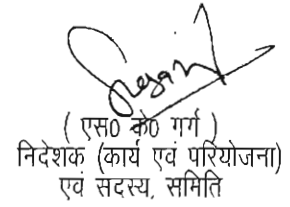 ( एस0 के0 गर्ग )
निदेशक (कार्य एवं परियोजना)
एवं सदस्य, समिति